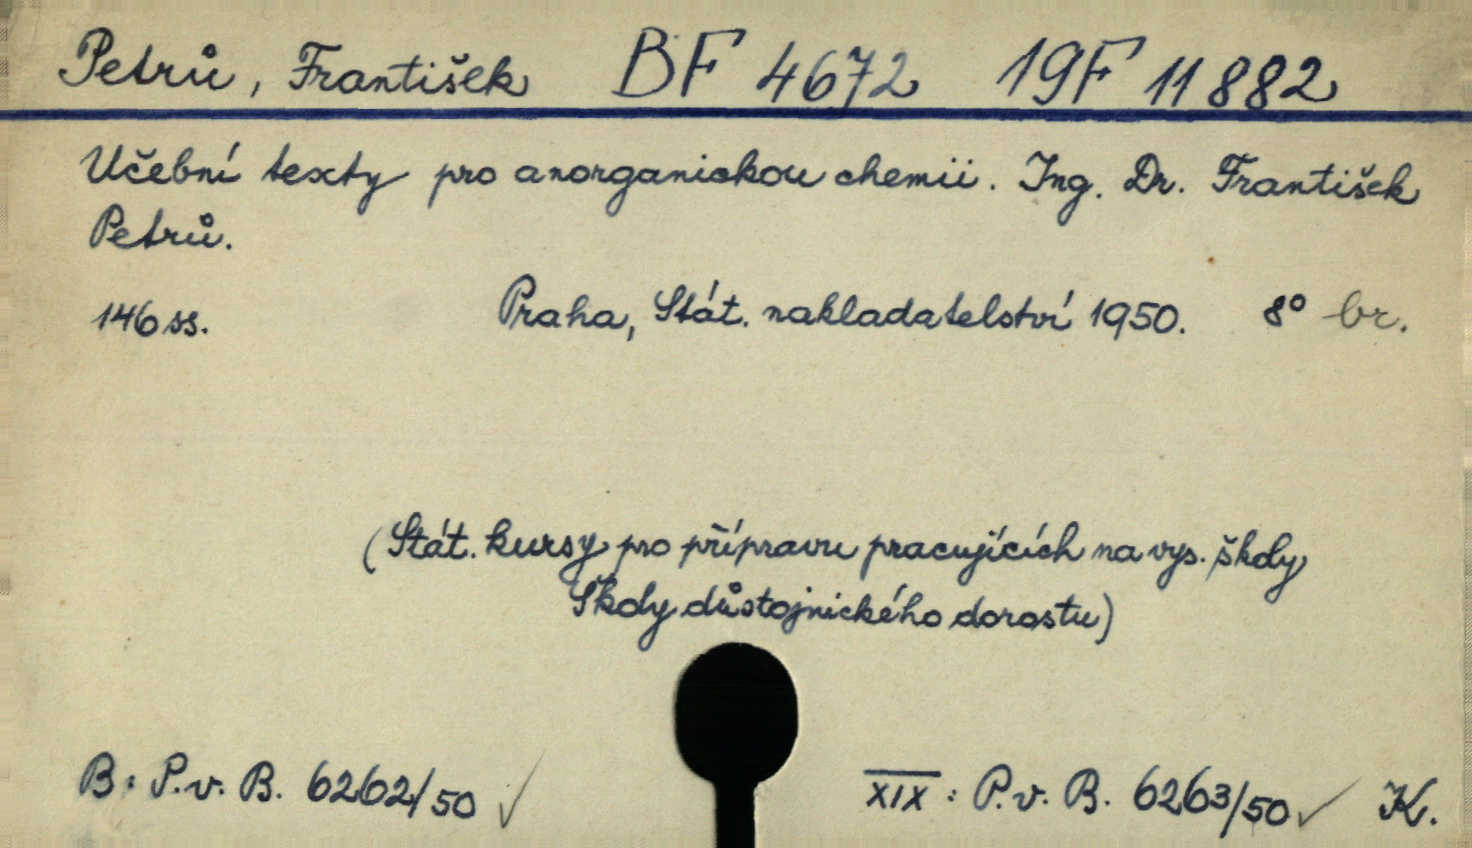 Petrů, František BF 4672 19F 11882
Učební texty pro anorganickou chemii. Ing. Dr. František
Petrů.
146 ss. Praha, Stát. nakladatelství 1950. 8° br.
(Stát. kursy pro přípravu pracujících na vys. školy
Školy důstojnického dorostu)
B: P.v. B. 6262/50 ✓ XIX: P.v. B. 6263/50 ✓ K.